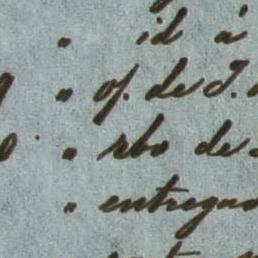 " id á
" of. de J.
" rbo de
" entregad